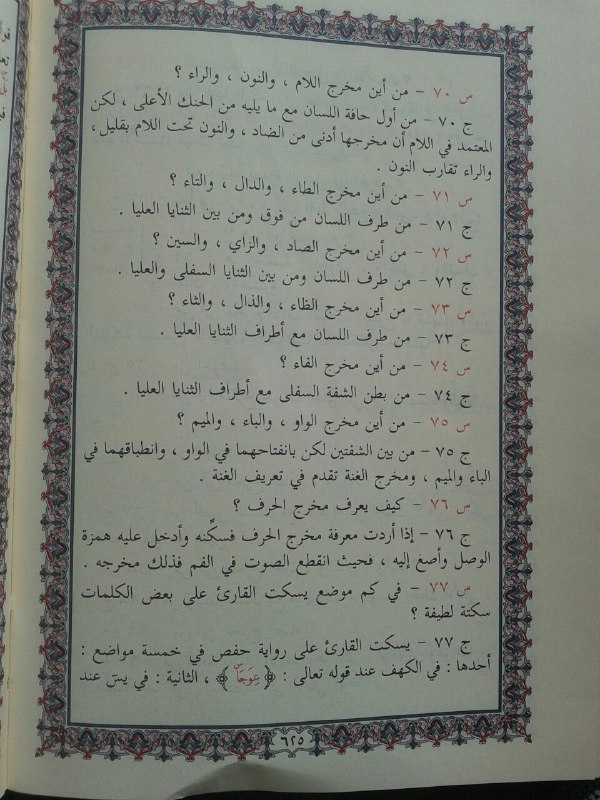 س ٧٠ - من أين مخرج اللام ، والنون ، والراء ؟
ج ٧٠ - من أول حافة اللسان مع ما يليه من الحنك الأعلى ، لكن
المعتمد في اللام أن مخرجها أدنى من الضاد ، والنون تحت اللام بقليل ،
والراء تقارب النون .
س ٧١ - من أين مخرج الطاء ، والدال ، والتاء ؟
ج ٧١ - من طرف اللسان من فوق ومن بين الثنايا العليا .
س ٧٢ - من أين مخرج الصاد ، والزاي ، والسين ؟
ج ٧٢ - من طرف اللسان ومن بين الثنايا السفلى والعليا .
س ٧٣ - من أين مخرج الظاء ، والذال ، والثاء ؟
ج ٧٣ - من طرف اللسان مع أطراف الثنايا العليا .
س ٧٤ - من أين مخرج الفاء ؟
ج ٧٤ - من بطن الشفة السفلى مع أطراف الثنايا العليا .
س ٧٥ - من أين مخرج الواو ، والباء ، والميم ؟
ج ٧٥ - من بين الشفتين لكن بانفتاحهما في الواو ، وانطباقهما في
الباء والميم ، ومخرج الغنة تقدم في تعريف الغنة .
س ٧٦ - كيف يعرف مخرج الحرف ؟
ج ٧٦ - إذا أردت معرفة مخرج الحرف فسكِّنه وأدخل عليه همزة
الوصل وأصغ إليه ، فحيث انقطع الصوت في الفم فذلك مخرجه .
س ٧٧ - في كم موضع يسكت القارئ على بعض الكلمات
سكتة لطيفة ؟
ج ٧٧ - يسكت القارئ على رواية حفص في خمسة مواضع :
أحدها : في الكهف عند قوله تعالى : ﴿ عِوَجَاۜ ﴾ ، الثانية : في يسٓ عند
٦٢٥